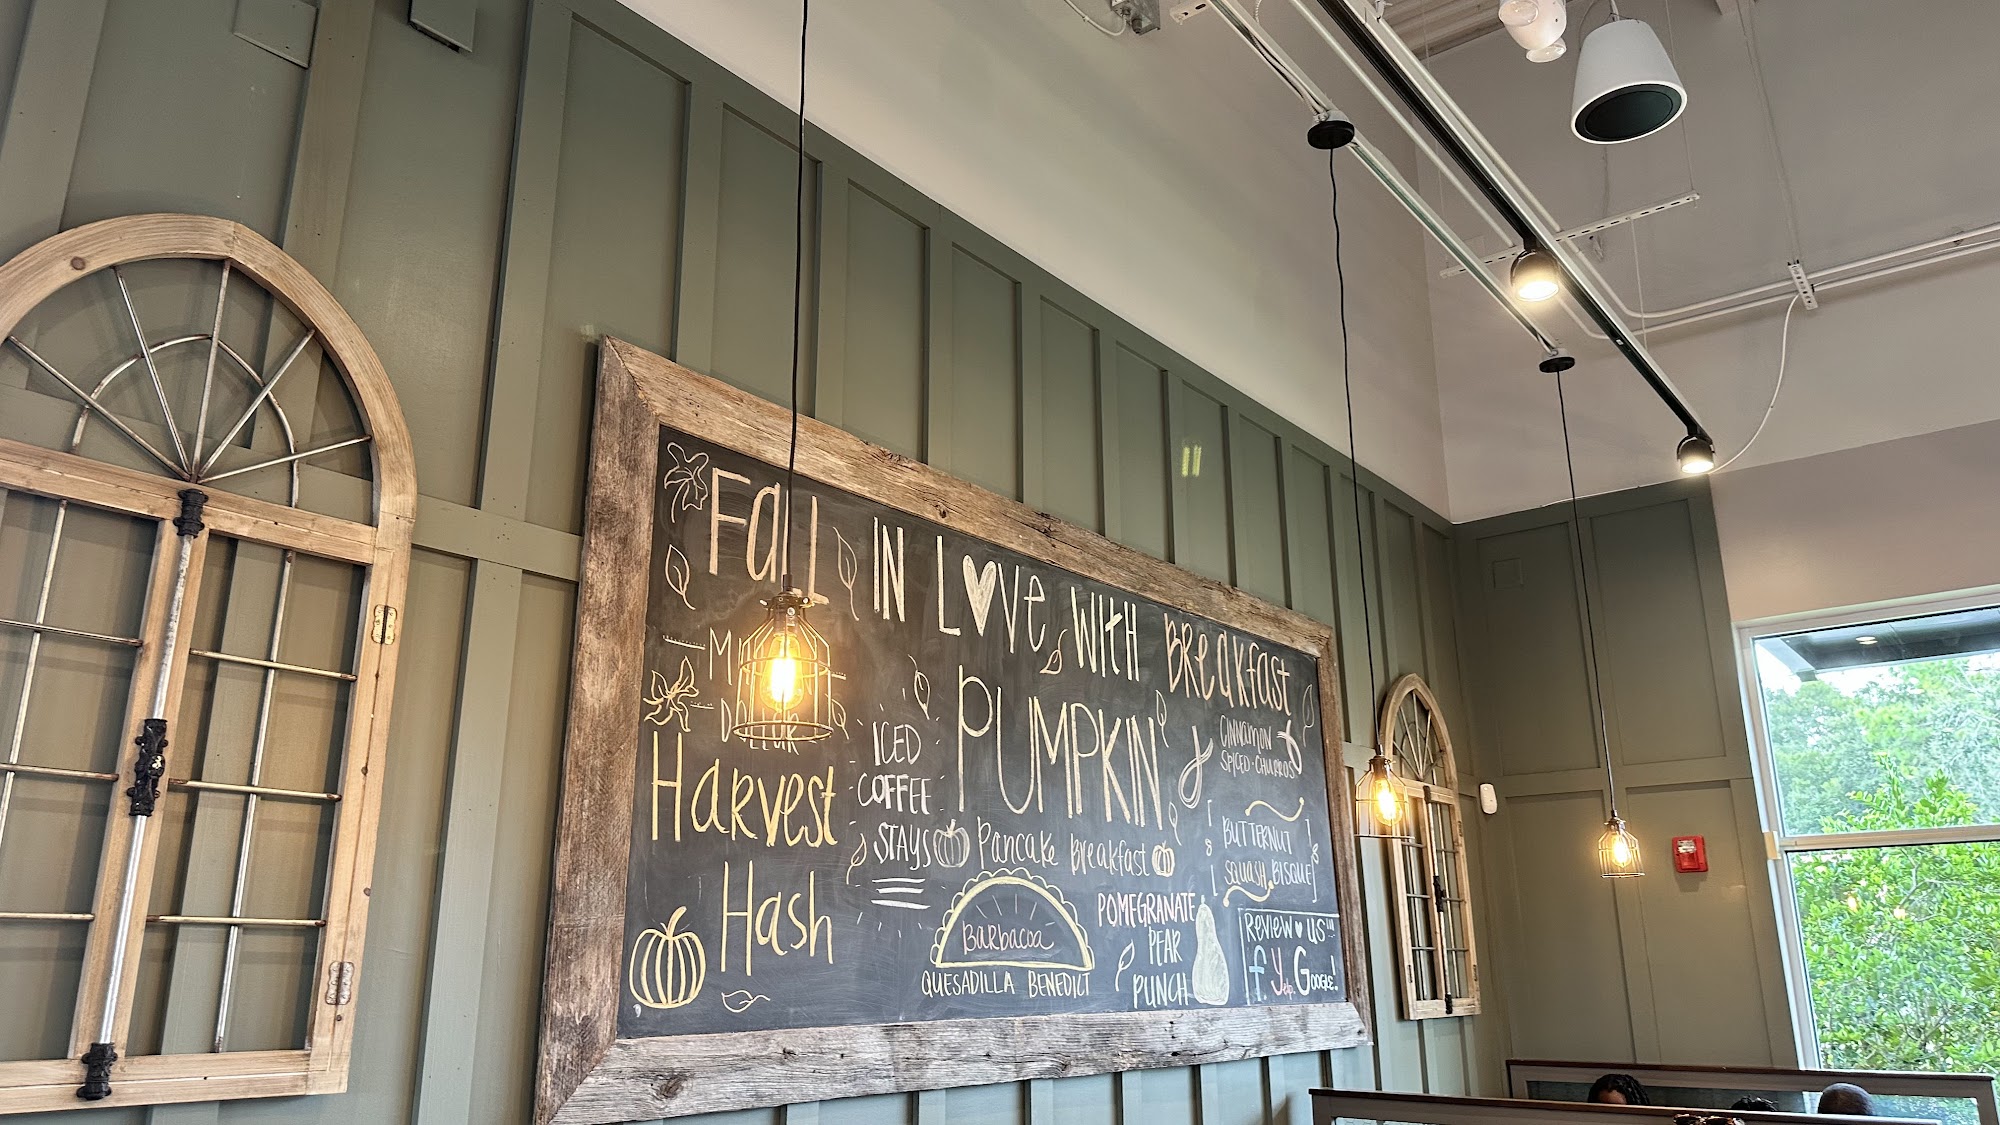 Fall IN LOVe WITH BReakfast
Harvest
Hash
ICED
COFFEE
STAYS
PUMPKIN
Pancake Breakfast
Barbacoa
QUESADILLA BENEDICT
POMEGRANATE
PEAR
PUNCH
CINNAMON
SPICED CHURROS
BUTTERNUT
SQUASH BISQUE
REVIEW US
f. Yelp. GOOGLE!